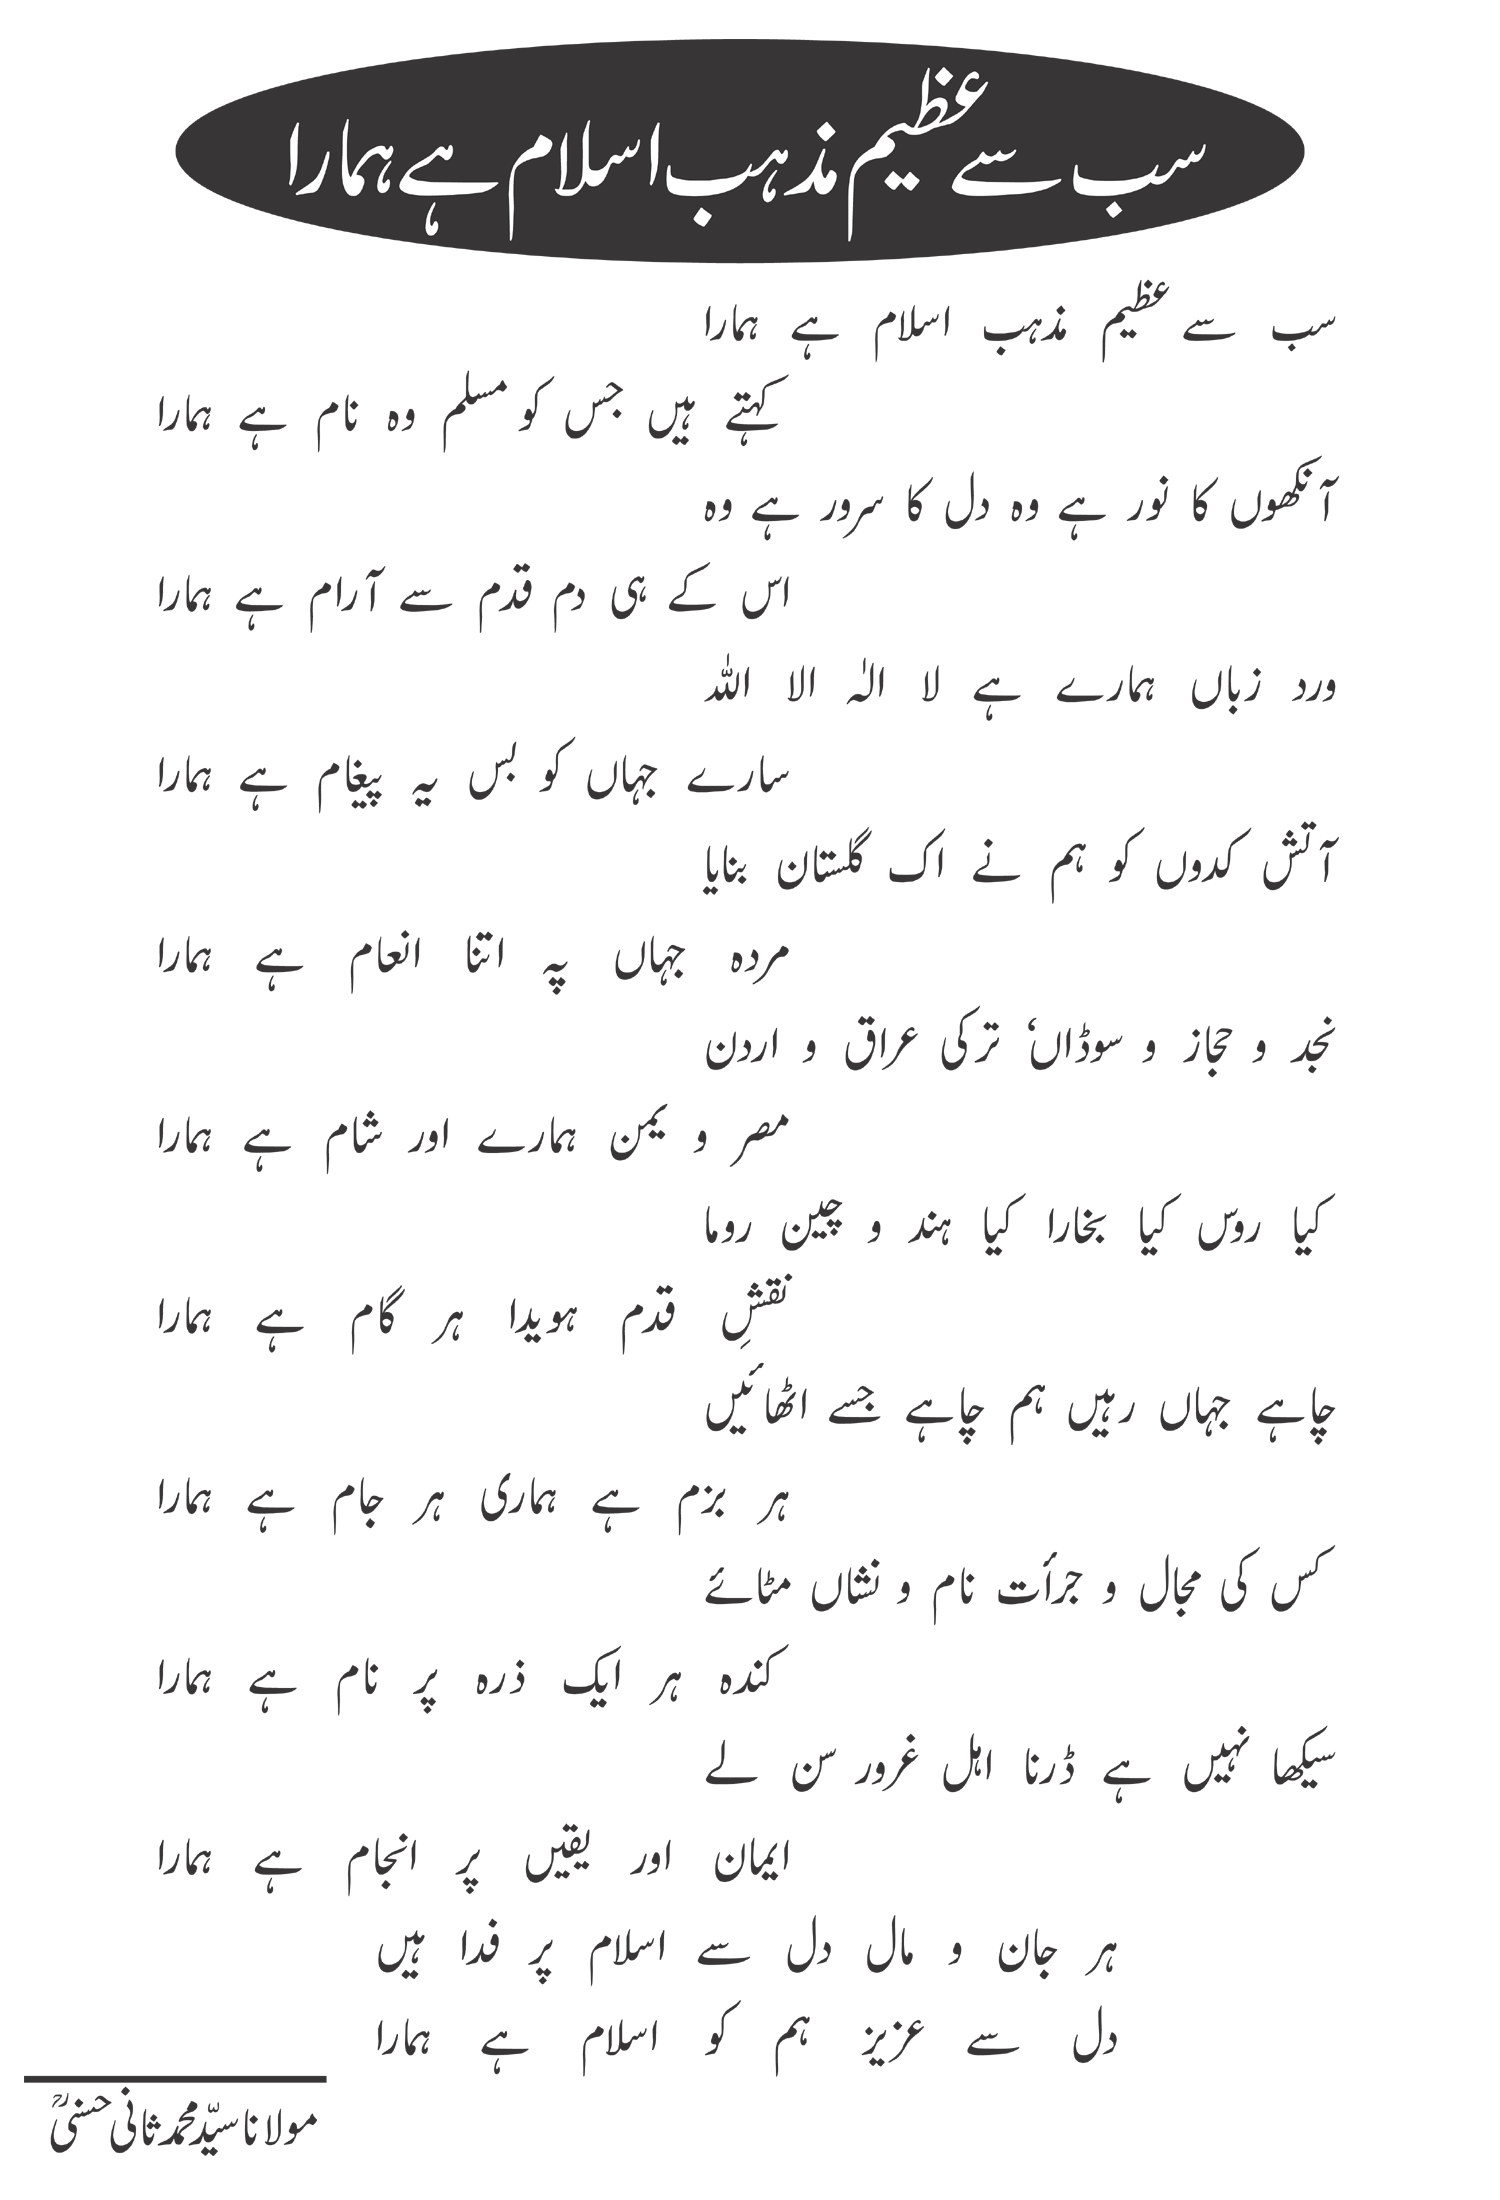 سب سے عظیم مذہب اسلام ہے ہمارا
سب سے عظیم مذہب اسلام ہے ہمارا
کہتے ہیں جس کو مسلم وہ نام ہے ہمارا
آنکھوں کا نور ہے وہ دل کا سرور ہے وہ
اس کے ہی دم قدم سے آرام ہے ہمارا
ورد زباں ہمارے ہے لا الٰہ الا اللہ
سارے جہاں کو بس یہ پیغام ہے ہمارا
آتش کدوں کو ہم نے اک گلستان بنایا
مردہ جہاں پہ اتنا انعام ہے ہمارا
نجد و حجاز و سوڈاں‘ ترکی عراق و اردن
مصر و یمن ہمارے اور شام ہے ہمارا
کیا روس کیا بخارا کیا ہند و چین روما
نقشِ قدم ہویدا ہر گام ہے ہمارا
چاہے جہاں رہیں ہم چاہے جسے اٹھائیں
ہر بزم ہے ہماری ہر جام ہے ہمارا
کس کی مجال و جرأت نام و نشاں مٹائے
کندہ ہر ایک ذرہ پر نام ہے ہمارا
سیکھا نہیں ہے ڈرنا اہل غرور سن لے
ایمان اور یقیں پر انجام ہے ہمارا
ہر جان و مال دل سے اسلام پر فدا ہیں
دل سے عزیز ہم کو اسلام ہے ہمارا
مولانا سیّد محمد ثانی حسنیؒ